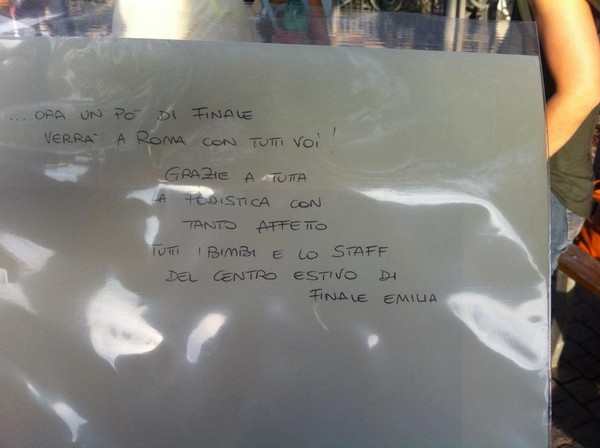 ... ORA UN PO' DI FINALE
VERRA' A ROMA CON TUTTI VOI!
GRAZIE A TUTTA
LA PODISTICA CON
TANTO AFFETTO
TUTTI I BIMBI E LO STAFF
DEL CENTRO ESTIVO DI
FINALE EMILIA